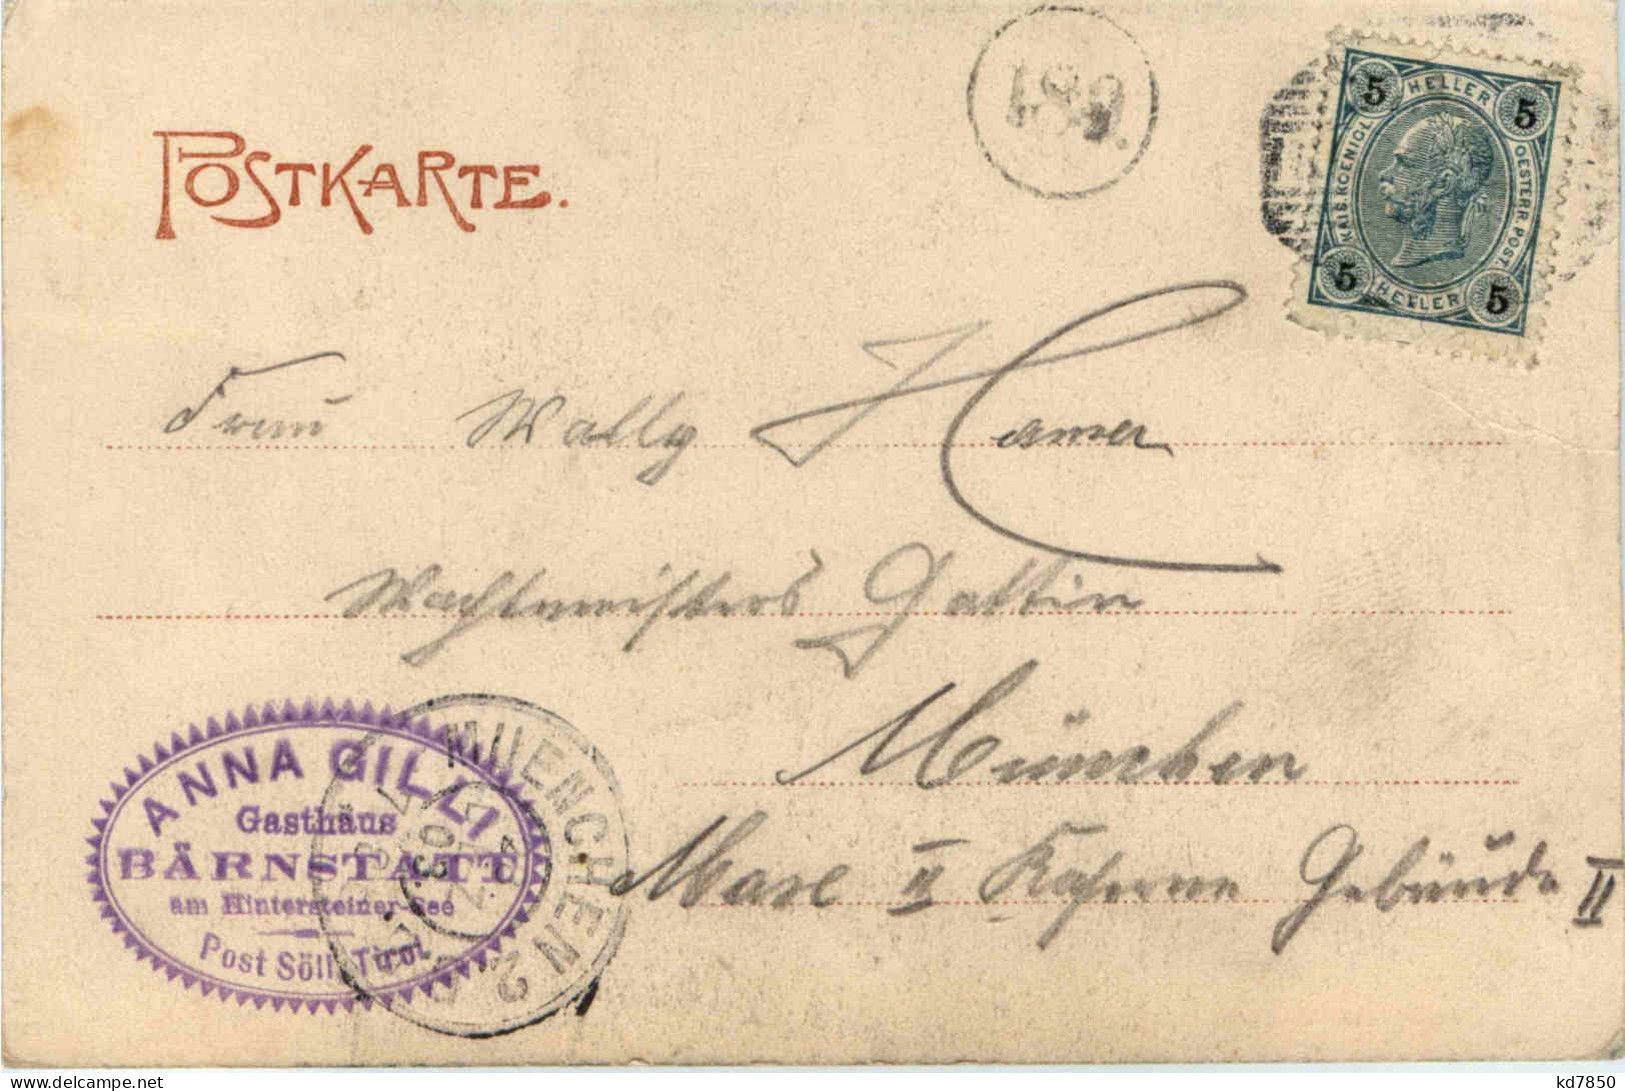 POSTKARTE.
189.
5 HELLER 5
KAIS. KOENIGL. OESTERR. POST.
5 HELLER 5
Frau Wally Hamer
Wachtmeisters Gattin
München
Max II Kaserne Gebäude II
ANNA GILLI
Gasthäus
BÄRNSTATT
am Hintersteiner-See
Post Söll, Tirol
MUENCHEN 2
kd7850